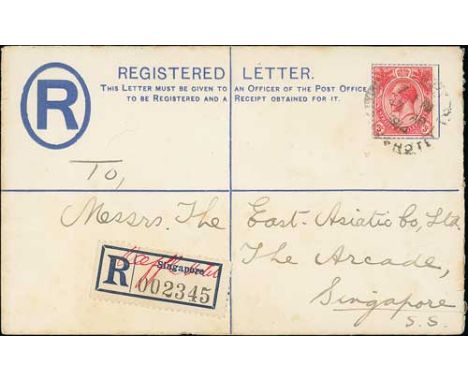 R
REGISTERED LETTER.
THIS LETTER MUST BE GIVEN TO AN OFFICER OF THE POST OFFICE
TO BE REGISTERED AND A RECEIPT OBTAINED FOR IT.
To,
Messrs. The East Asiatic Co, Ltd.
The Arcade,
Singapore
S. S.
R
Singapore
002345